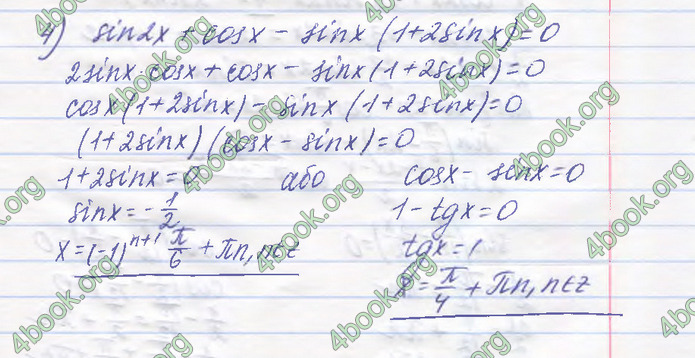 4) sin2x + cosx - sinx (1+2sinx)=0
2sinx·cosx + cosx - sinx(1+2sinx)=0
cosx(1+2sinx) - sinx (1+2sinx)=0
(1+2sinx)(cosx - sinx)=0
1+2sinx=0 або cosx - sinx=0
sinx = -1/2 1 - tgx=0
x = (-1)^(n+1) π/6 + πn, n∈z tgx=1
x = π/4 + πn, n∈z
4book.org